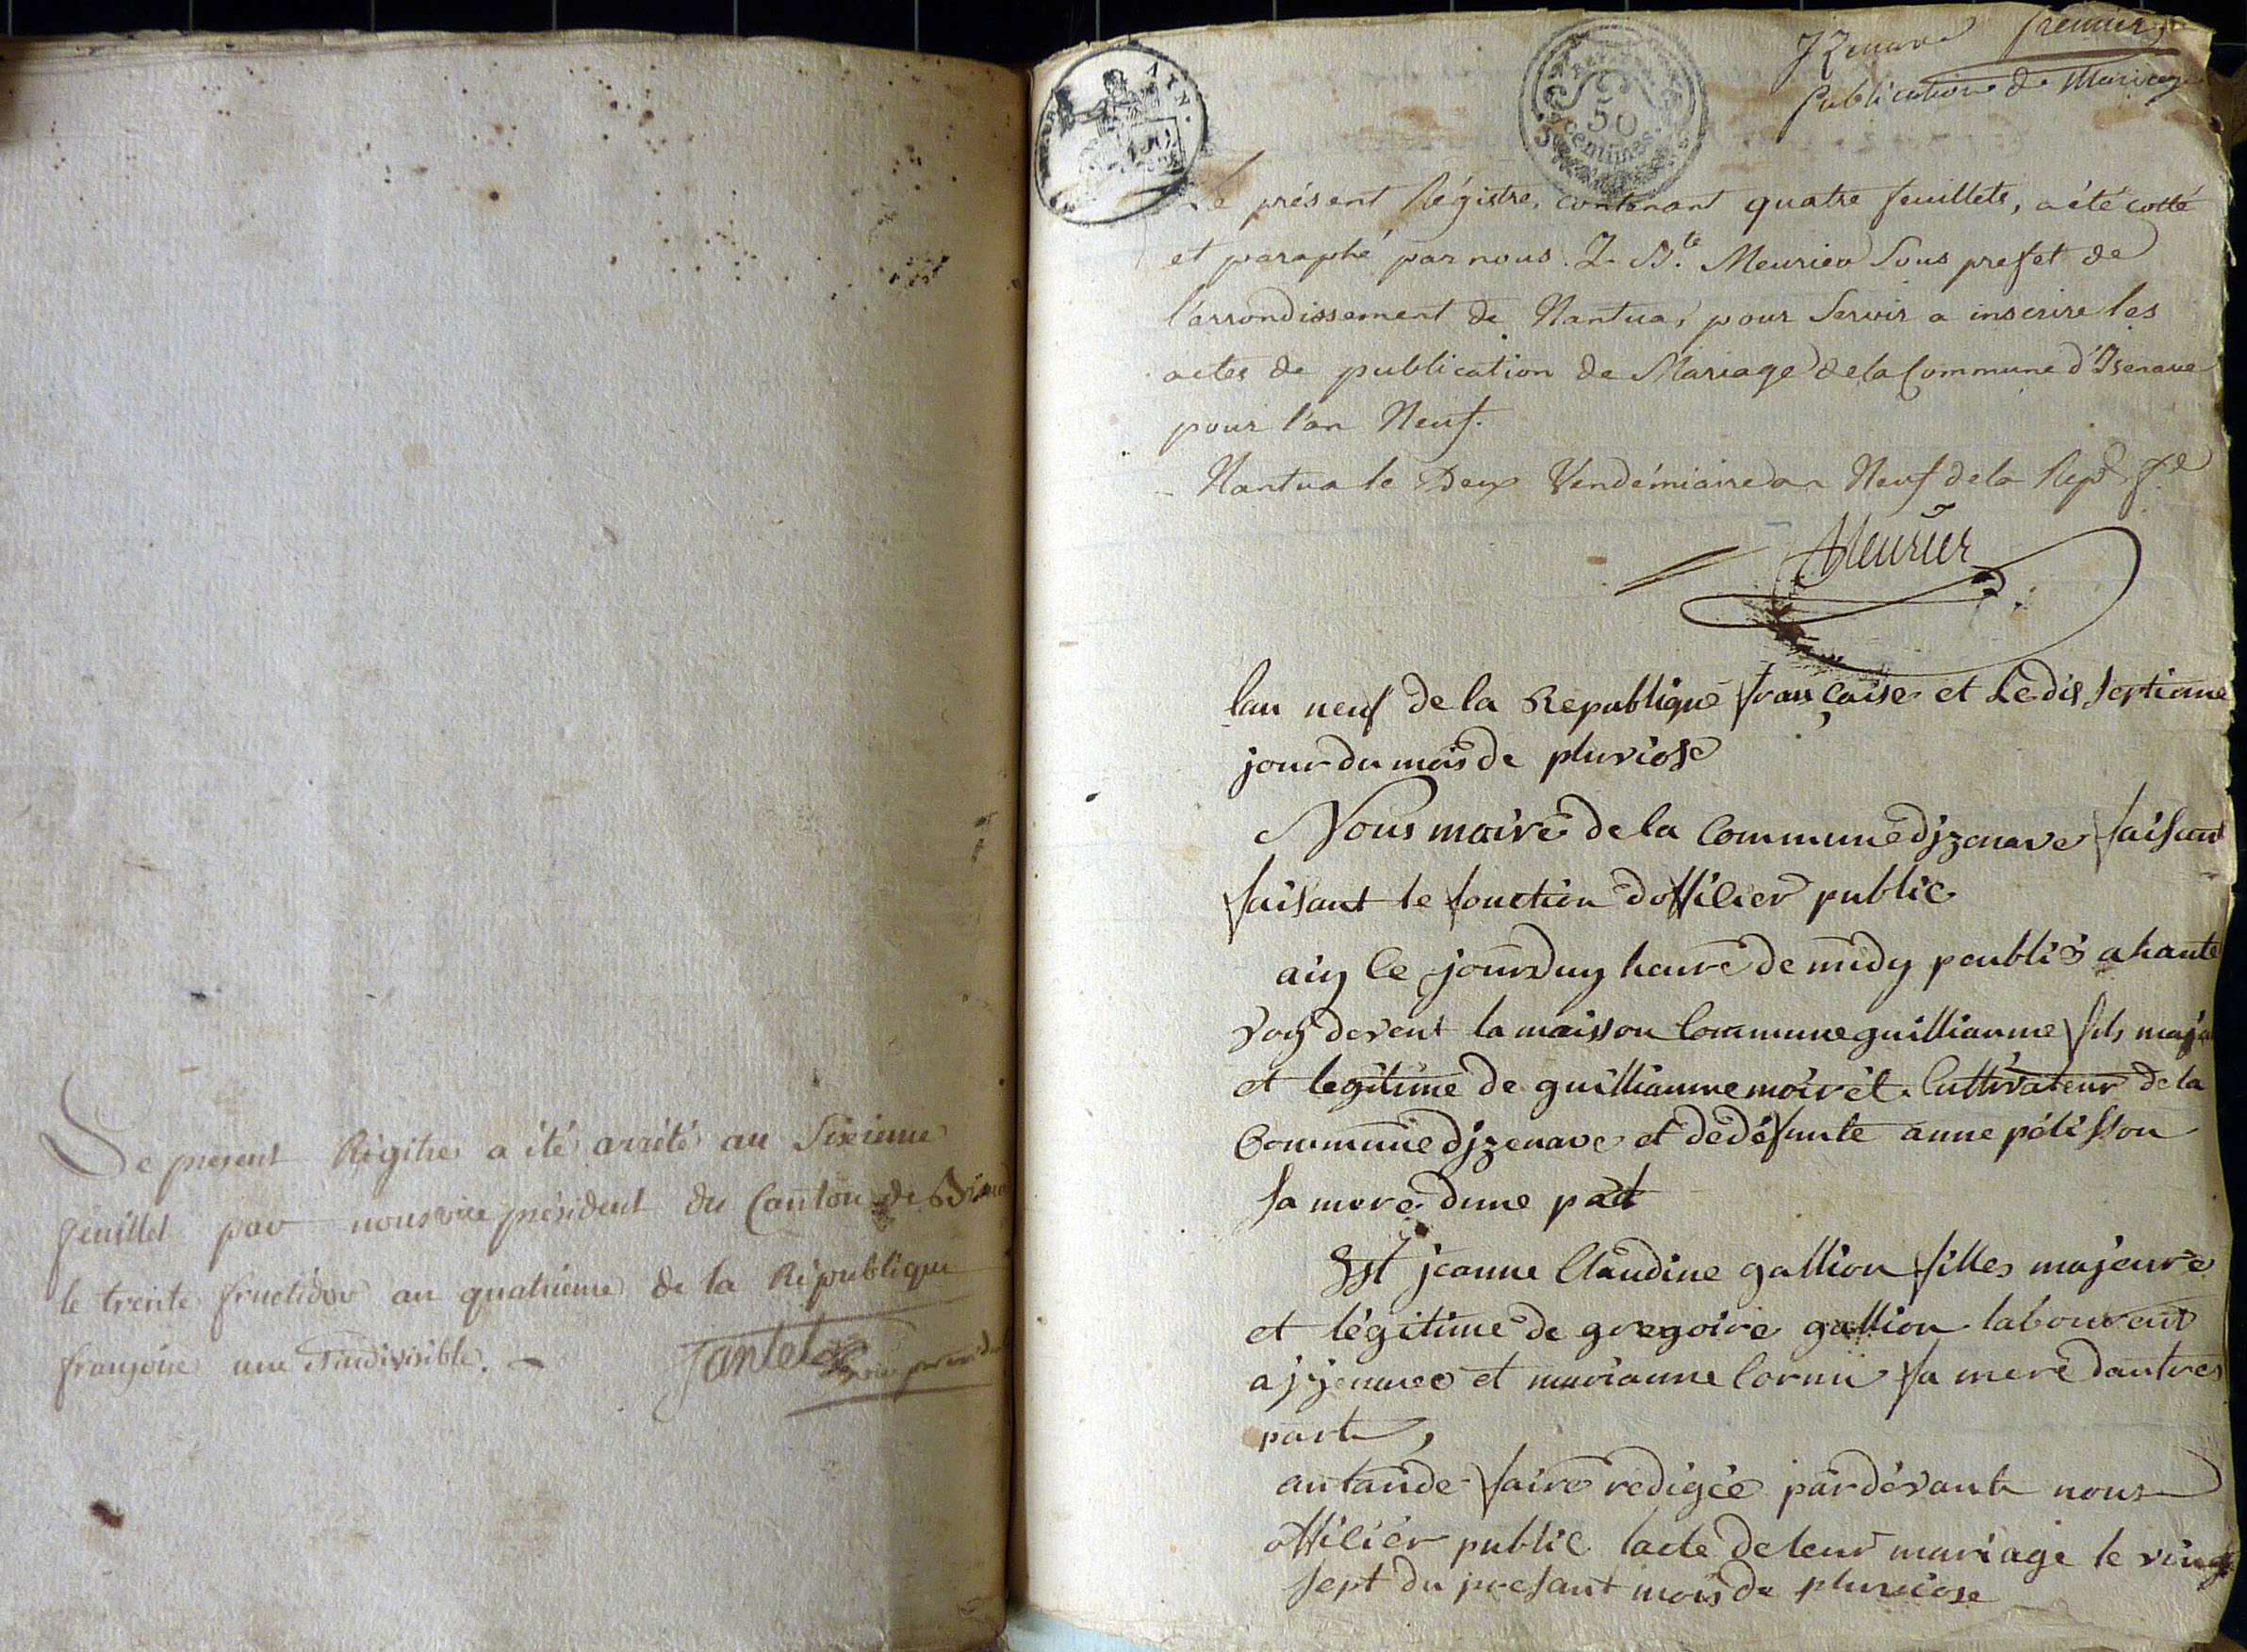 Le present Régitre a été arrêté au Sixieme
feuillet par nous vice président du Canton de
le trente fructidor an quatrieme de la République
françoise une et indivisible. -
Tantet
Izenave premier
Publication de Mariage
50
centimes
Le présent Régistre, contenant quatre feuillets, a été cotté
et paraphé par nous J. B.te Meurier Sous prefet de
l'arrondissement de Nantua, pour Servir a inscrire les
actes de publication de Mariage de la Commune d'Isenave
pour l'an Neuf.
Nantua le Deux Vendémiaire an Neuf de la Rep.e f.e
Meurier
lan neuf de la Republique francaise et Le dis septieme
jour du mois de pluviose
Nous maire de la Commune djzenave faisant
faisant le fonction dofficier public
aiy Ce jourduy heure de midy peublié a haute
voy devent la maisson Commune guilliaume fils maj
et legitime de guilliaume moirél Cultivateur de la
Commune djzenave et de défunte anne pélisson
sa mere dune part
Est jeanne Claudine gallion filles majeure
et légitime de gregoire gallion laboureur
a jzenave et marianne Cornu sa mere dautres
part,
antande faire redigée pardevant nous
officiér public lacte de leur mariage le vingt
sept du presant mois de pluviose